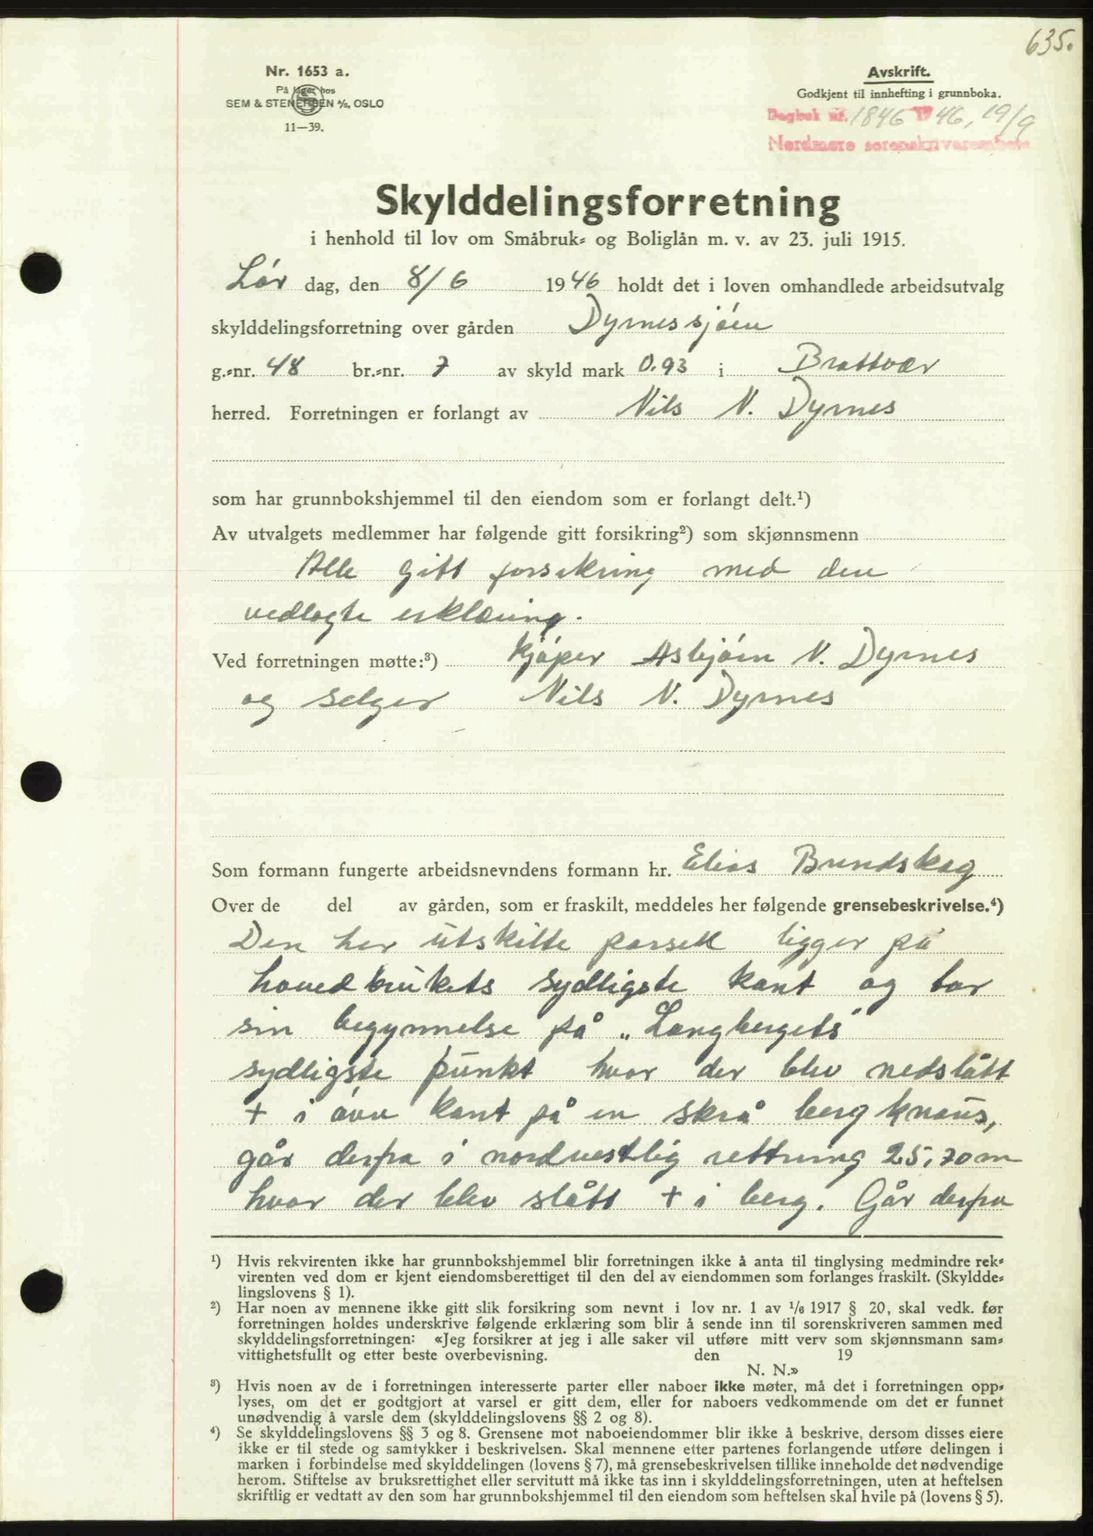 635.
Nr. 1653 a.
På lager hos
SEM & STENERSEN A/S, OSLO
11—39.
Avskrift.
Godkjent til innhefting i grunnboka.
Dagbok nr. 1846 1946, 19/9
Nordmøre sorenskriverembete
Skylddelingsforretning
i henhold til lov om Småbruk- og Boliglån m. v. av 23. juli 1915.
Lør dag, den 8/6 1946 holdt det i loven omhandlede arbeidsutvalg
skylddelingsforretning over gården Dyrnessjøen
g.-nr. 48 br.-nr. 7 av skyld mark 0.93 i Brattvær
herred. Forretningen er forlangt av Nils N. Dyrnes
som har grunnbokshjemmel til den eiendom som er forlangt delt.¹)
Av utvalgets medlemmer har følgende gitt forsikring²) som skjønnsmenn
Alle gitt forsikring med den
vedlagte erklæring.
Ved forretningen møtte:³) Kjøper Asbjørn N. Dyrnes
og selger Nils N. Dyrnes
Som formann fungerte arbeidsnevndens formann hr. Elias Bundskog
Over de del av gården, som er fraskilt, meddeles her følgende grensebeskrivelse.⁴)
Den her utskilte parsell ligger på
hovedbrukets sydligste kant og tar
sin begynnelse på „Langbergets"
sydligste punkt hvor der blev nedslått
+ i øvre kant på en skrå berg knaus,
går derfra i nordvestlig rettning 25,70 m
hvor der blev slått + i berg. Går derfra
¹) Hvis rekvirenten ikke har grunnbokshjemmel blir forretningen ikke å anta til tinglysing medmindre rek-
virenten ved dom er kjent eiendomsberettiget til den del av eiendommen som forlanges fraskilt. (Skyldde-
lingslovens § 1).
²) Har noen av mennene ikke gitt slik forsikring som nevnt i lov nr. 1 av 1/6 1917 § 20, skal vedk. før
forretningen holdes underskrive følgende erklæring som blir å sende inn til sorenskriveren sammen med
skylddelingsforretningen: «Jeg forsikrer at jeg i alle saker vil utføre mitt verv som skjønnsmann sam-
vittighetsfullt og etter beste overbevisning. den 19
N. N.»
³) Hvis noen av de i forretningen interesserte parter eller naboer ikke møter, må det i forretningen opp-
lyses, om det er godtgjort at varsel er gitt dem, eller for naboers vedkommende om det er funnet
unødvendig å varsle dem (skylddelingslovens §§ 2 og 8).
⁴) Se skylddelingslovens §§ 3 og 8. Grensene mot naboeiendommer blir ikke å beskrive, dersom disses eiere
ikke er til stede og samtykker i beskrivelsen. Skal mennene etter partenes forlangende utføre delingen i
marken i forbindelse med skylddelingen (lovens § 7), må grensebeskrivelsen tillike inneholde det nødvendige
herom. Stiftelse av bruksrettighet eller servitutt må ikke tas inn i skylddelingsforretningen, uten at heftelsen
skriftlig er vedtatt av den som har grunnbokshjemmel til den eiendom som heftelsen skal hvile på (lovens § 5).